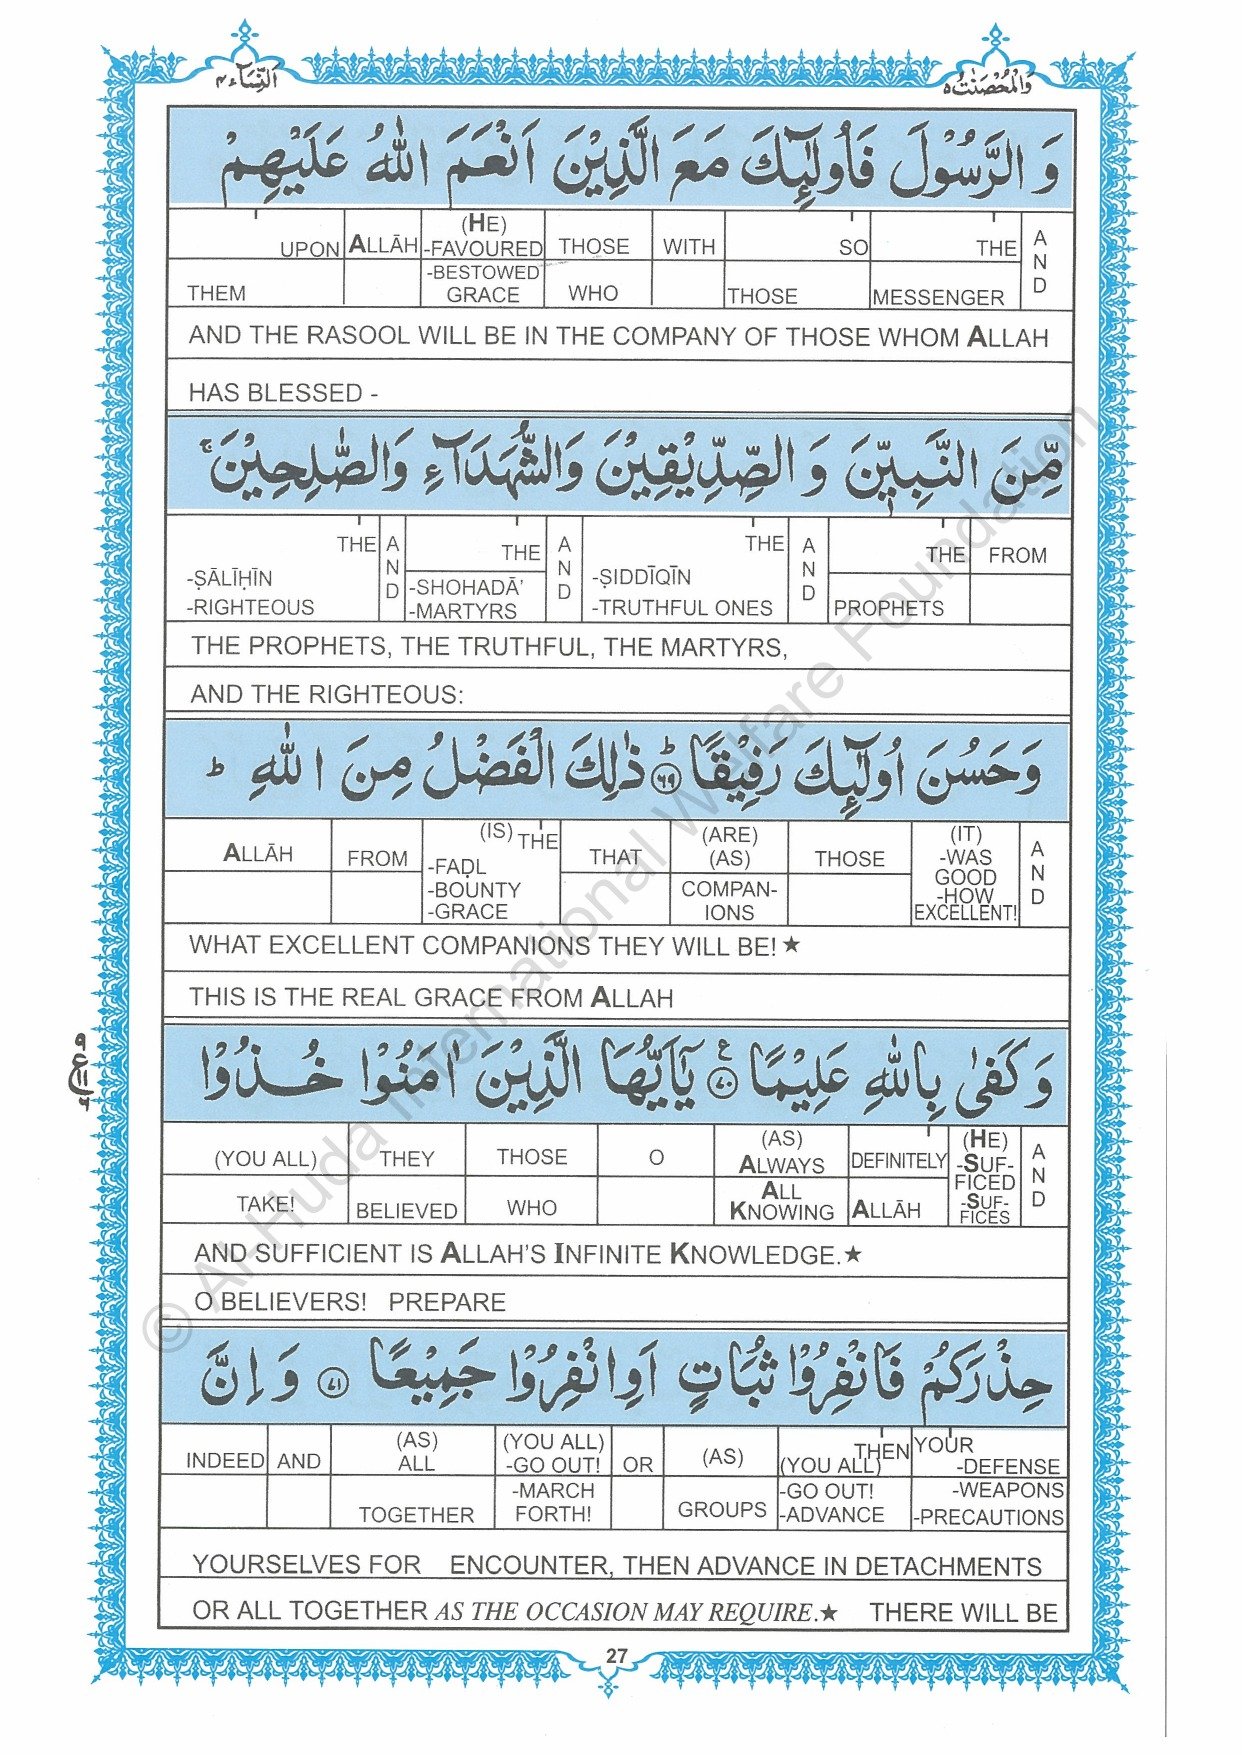 اَلنِّسَآء ٤
وَالْمُحْصَنٰت ٥
وَ الرَّسُوْلَ فَاُولٰٓئِكَ مَعَ الَّذِيْنَ اَنْعَمَ اللّٰهُ عَلَيْهِمْ
UPON ALLĀH (HE) -FAVOURED THOSE WITH SO THE AND
THEM -BESTOWED GRACE WHO THOSE MESSENGER
AND THE RASOOL WILL BE IN THE COMPANY OF THOSE WHOM ALLAH
HAS BLESSED -
مِّنَ النَّبِيّٖنَ وَ الصِّدِّيْقِيْنَ وَالشُّهَدَآءِ وَالصّٰلِحِيْنَ ۚ
THE AND THE AND THE AND THE FROM
-ṢĀLĪḤĪN -SHOHADĀ’ -ṢIDDĪQĪN
-RIGHTEOUS -MARTYRS -TRUTHFUL ONES PROPHETS
THE PROPHETS, THE TRUTHFUL, THE MARTYRS,
AND THE RIGHTEOUS:
وَحَسُنَ اُولٰٓئِكَ رَفِيْقًا ؕ ۶۹ ذٰلِكَ الْفَضْلُ مِنَ اللّٰهِ ؕ
ALLĀH FROM (IS) THE THAT (ARE) (AS) THOSE (IT) -WAS GOOD AND
-FAḌL -BOUNTY -GRACE COMPAN-IONS -HOW EXCELLENT!
WHAT EXCELLENT COMPANIONS THEY WILL BE! ★
THIS IS THE REAL GRACE FROM ALLAH
وَ كَفٰى بِاللّٰهِ عَلِيْمًا ۷۰ ع يٰٓاَيُّهَا الَّذِيْنَ اٰمَنُوْا خُذُوْا
٩
ع ١١
٦
(YOU ALL) THEY THOSE O (AS) ALWAYS DEFINITELY (HE) -SUF-FICED AND
TAKE! BELIEVED WHO ALL KNOWING ALLĀH -SUF-FICES
AND SUFFICIENT IS ALLAH’S INFINITE KNOWLEDGE.★
O BELIEVERS! PREPARE
حِذْرَكُمْ فَانْفِرُوْا ثُبَاتٍ اَوِانْفِرُوْا جَمِيْعًا ۷۱ وَ اِنَّ
INDEED AND (AS) ALL (YOU ALL) -GO OUT! OR (AS) THEN (YOU ALL) YOUR -DEFENSE
TOGETHER -MARCH FORTH! GROUPS -GO OUT! -ADVANCE -WEAPONS -PRECAUTIONS
YOURSELVES FOR ENCOUNTER, THEN ADVANCE IN DETACHMENTS
OR ALL TOGETHER AS THE OCCASION MAY REQUIRE.★ THERE WILL BE
27
© Al-Huda International Welfare Foundation